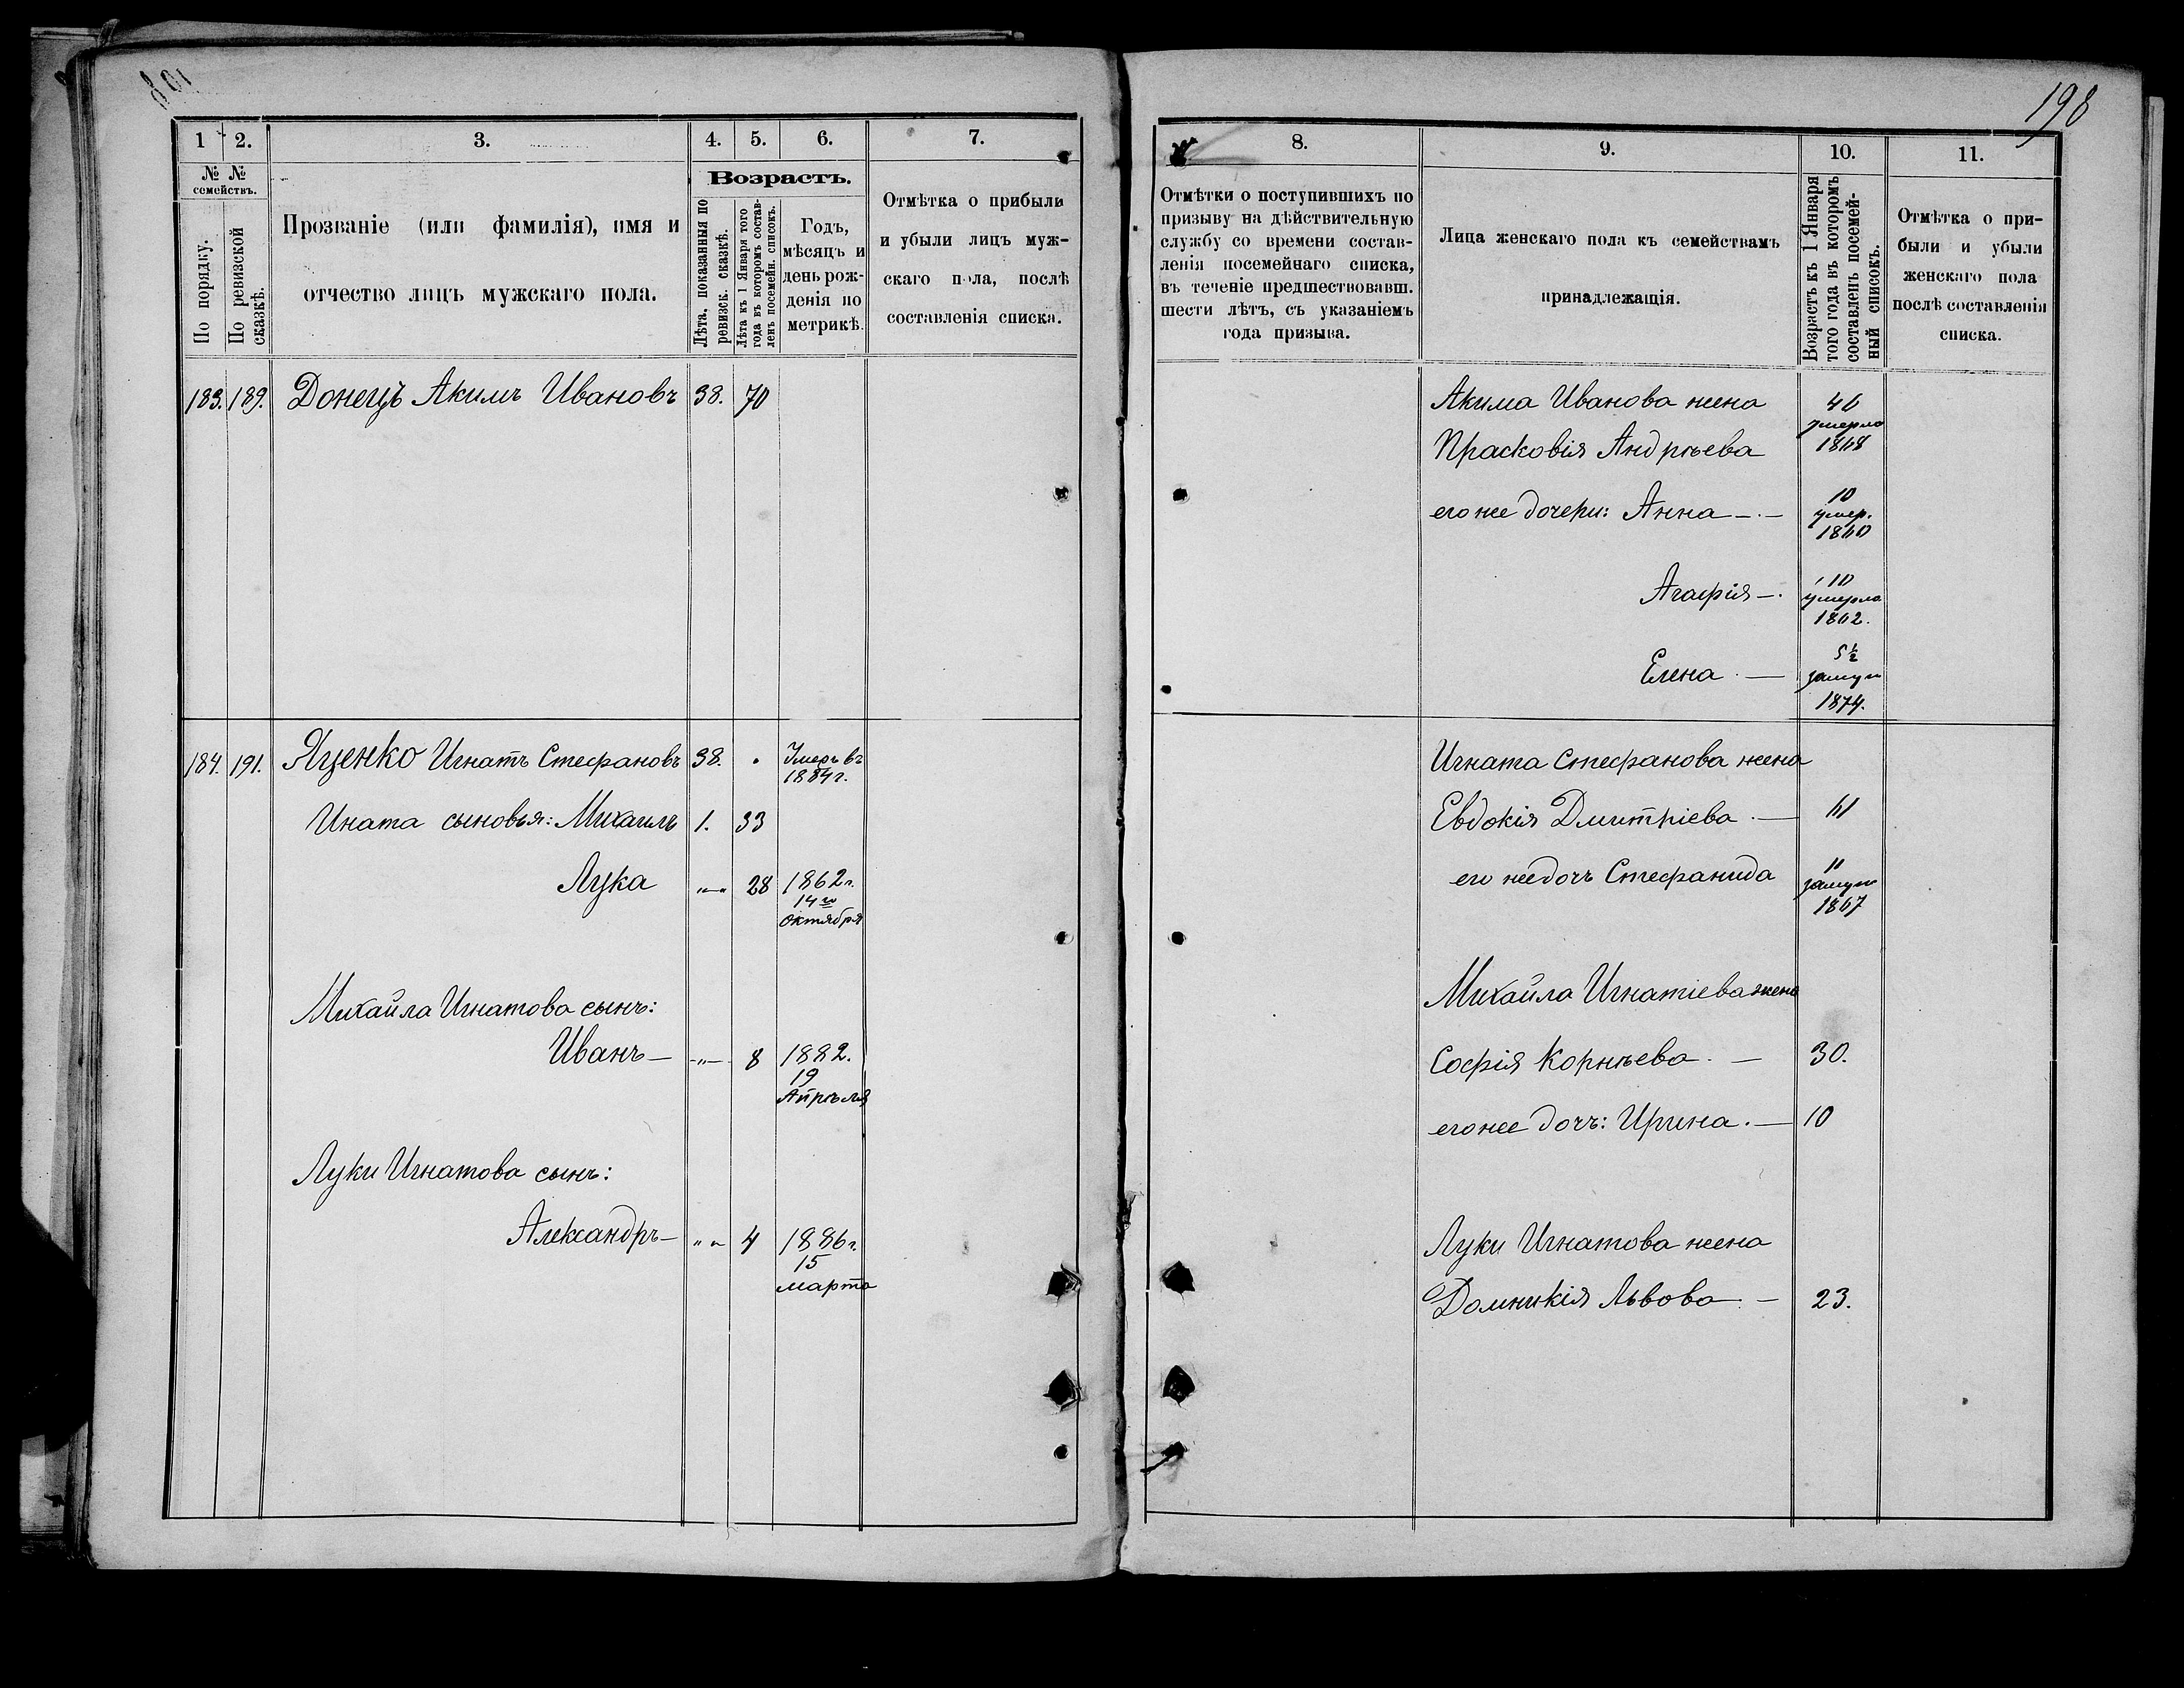 198
1 2. 3. 4. 5. 6. 7.
№ № семействъ.
По порядку.
По ревизской сказкѣ.
Прозваніе (или фамилія), имя и
отчество лицъ мужскаго пола.
Возрастъ.
Лѣта, показанныя по
ревизск. сказкѣ.
Лѣта къ 1 Января того
года въ которомъ состав-
ленъ посемейн. списокъ.
Годъ,
мѣсяцъ и
день рож-
денія по
метрикѣ.
Отмѣтка о прибыли
и убыли лицъ муж-
скаго пола, послѣ
составленія списка.
183. 189. Донецъ Акимъ Ивановъ 38. 70
184. 191. Яценко Игнатъ Стефановъ 38. Умеръ въ
1884 г.
Ината сыновья: Михаилъ 1. 33
Лука „—„ 28 1862 г.
14го
октября
Михайла Игнатова сынъ:
Иванъ — —„— 8 1882.
19
Апрѣля
Луки Игнатова сынъ:
Александръ — „ „ 4 1886 г.
15
марта
8. 9. 10. 11.
Отмѣтки о поступившихъ по
призыву на дѣйствительную
службу со времени состав-
ленія посемейнаго списка,
въ теченіе предшествовавш.
шести лѣтъ, съ указаніемъ
года призыва.
Лица женскаго пола къ семействамъ
принадлежащія.
Возрастъ къ 1 Января
того года въ которомъ
составленъ посемей-
ный списокъ.
Отмѣтка о при-
были и убыли
женскаго пола
послѣ составленія
списка.
Акима Иванова жена 46
умерла
Прасковія Андрѣева 1868
его же дочери: Анна —.— 10
умер.
1860
Агафія —. 10
умерла
1862.
Елена . — 5½
замуж
1874.
Игната Стефанова жена
Евдокія Дмитріева . — 61
его же дочь Стефанида 11
замуж
1867
Михайла Игнатіева жена
Софія Корнѣева . — 30.
его же дочь: Ирина . — 10
Луки Игнатова жена
Домникія Львова . — 23.